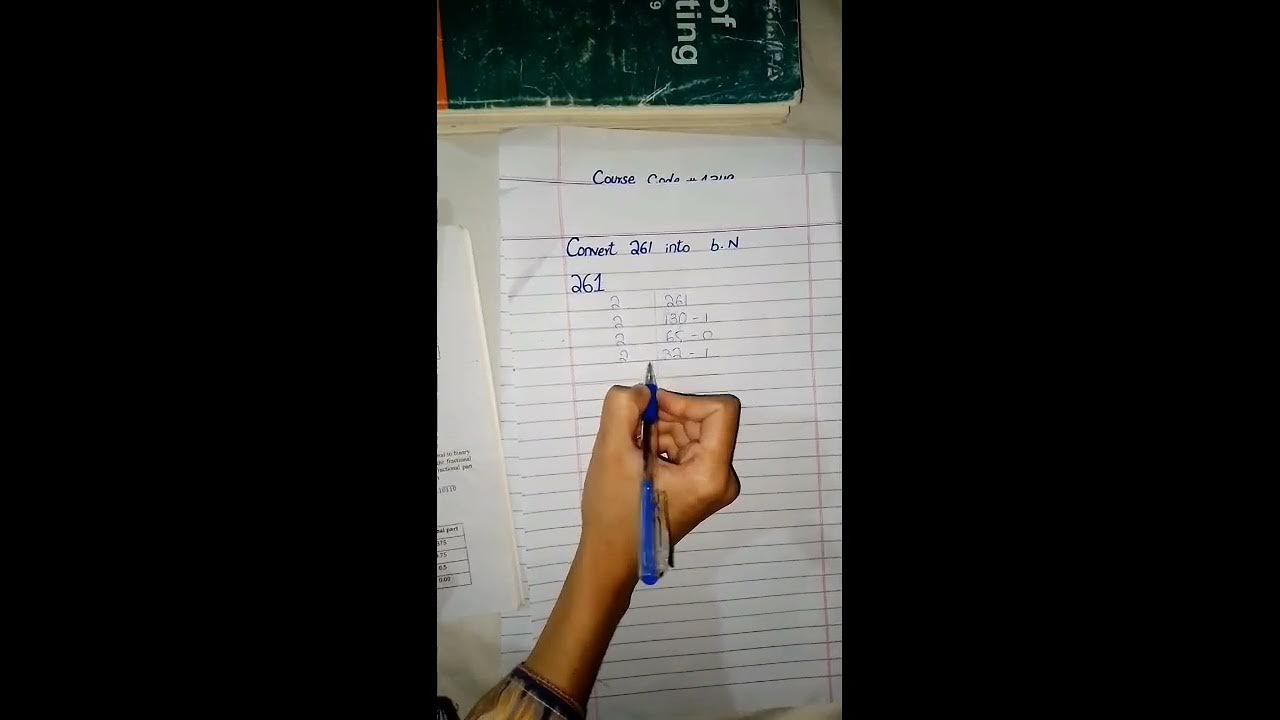 of
ting
Course Code #
Convert 261 into b.N
261
2 261
2 130 - 1
2 65 - 0
2 32 - 1
to binary
fractional
fractional part
10110
part
375
.75
0.5
0.00